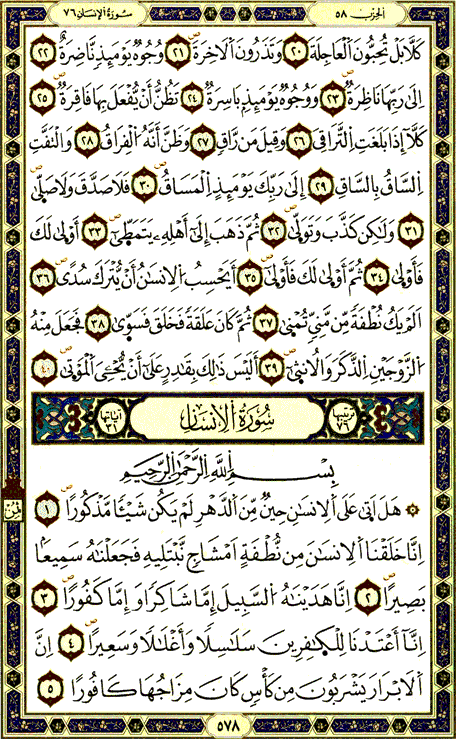 الحزب ٥٨
سورة الإنسان ٧٦
كَلَّا بَلْ تُحِبُّونَ اَلْعَاجِلَةَ ٢٠ وَتَذَرُونَ اَلَاخِرَةَ ٢١ وُجُوهٌ يَوْمَئِذٍ نَّاضِرَةٌ ٢٢
اِلَىٰ رَبِّهَا نَاظِرَةٌ ٢٣ وَوُجُوهٌ يَوْمَئِذٍ بَاسِرَةٌ ٢٤ تَظُنُّ أَنْ يُّفْعَلَ بِهَا فَاقِرَةٌ ٢٥
كَلَّا إِذَا بَلَغَتِ اِلتَّرَاقِيَ ٢٦ وَقِيلَ مَن رَّاقٍ ٢٧ وَظَنَّ أَنَّهُ اُلْفِرَاقُ ٢٨ وَالْتَفَّتِ
اِلسَّاقُ بِالسَّاقِ ٢٩ إِلَىٰ رَبِّكَ يَوْمَئِذٍ اِلْمَسَاقُ ٣٠ فَلَا صَدَّقَ وَلَا صَلَّىٰ
٣١ وَلَٰكِن كَذَّبَ وَتَوَلَّىٰ ٣٢ ثُمَّ ذَهَبَ إِلَىٰٓ أَهْلِهِۦ يَتَمَطَّىٰٓ ٣٣ أَوْلَىٰ لَكَ
فَأَوْلَىٰ ٣٤ ثُمَّ أَوْلَىٰ لَكَ فَأَوْلَىٰٓ ٣٥ أَيَحْسِبُ اُلِانسَٰنُ أَنْ يُّتْرَكَ سُدًى ٣٦
اَلَمْ يَكُ نُطْفَةً مِّن مَّنِيٍّ تُمْنَىٰ ٣٧ ثُمَّ كَانَ عَلَقَةً فَخَلَقَ فَسَوَّىٰ ٣٨ فَجَعَلَ مِنْهُ
اُلزَّوْجَيْنِ اِلذَّكَرَ وَالُانثَىٰٓ ٣٩ أَلَيْسَ ذَٰلِكَ بِقَٰدِرٍ عَلَىٰٓ أَنْ يُّحْۦِيَ اَلْمَوْتَىٰ ٤٠
ترتيبها ٧٦ سُورَةُ الِانسَانِ آياتها ٣١
بِسْمِ اِللَّهِ اِلرَّحْمَٰنِ اِلرَّحِيمِ
هَلَ اَتَىٰ عَلَى اَلِانسَٰنِ حِينٌ مِّنَ اَلدَّهْرِ لَمْ يَكُن شَيْـًٔا مَّذْكُورًا ١
ثمن
اِنَّا خَلَقْنَا اَلِانسَٰنَ مِن نُّطْفَةٍ اَمْشَاجٍ نَّبْتَلِيهِ فَجَعَلْنَٰهُ سَمِيعًا
بَصِيرًا ٢ اِنَّا هَدَيْنَٰهُ اُلسَّبِيلَ إِمَّا شَاكِرًا وَإِمَّا كَفُورًا ٣
اِنَّآ أَعْتَدْنَا لِلْكَٰفِرِينَ سَلَٰسِلًا وَأَغْلَٰلًا وَسَعِيرًا ٤ اِنَّ
اَلَابْرَارَ يَشْرَبُونَ مِن كَأْسٍ كَانَ مِزَاجُهَا كَافُورًا ٥
٥٧٨